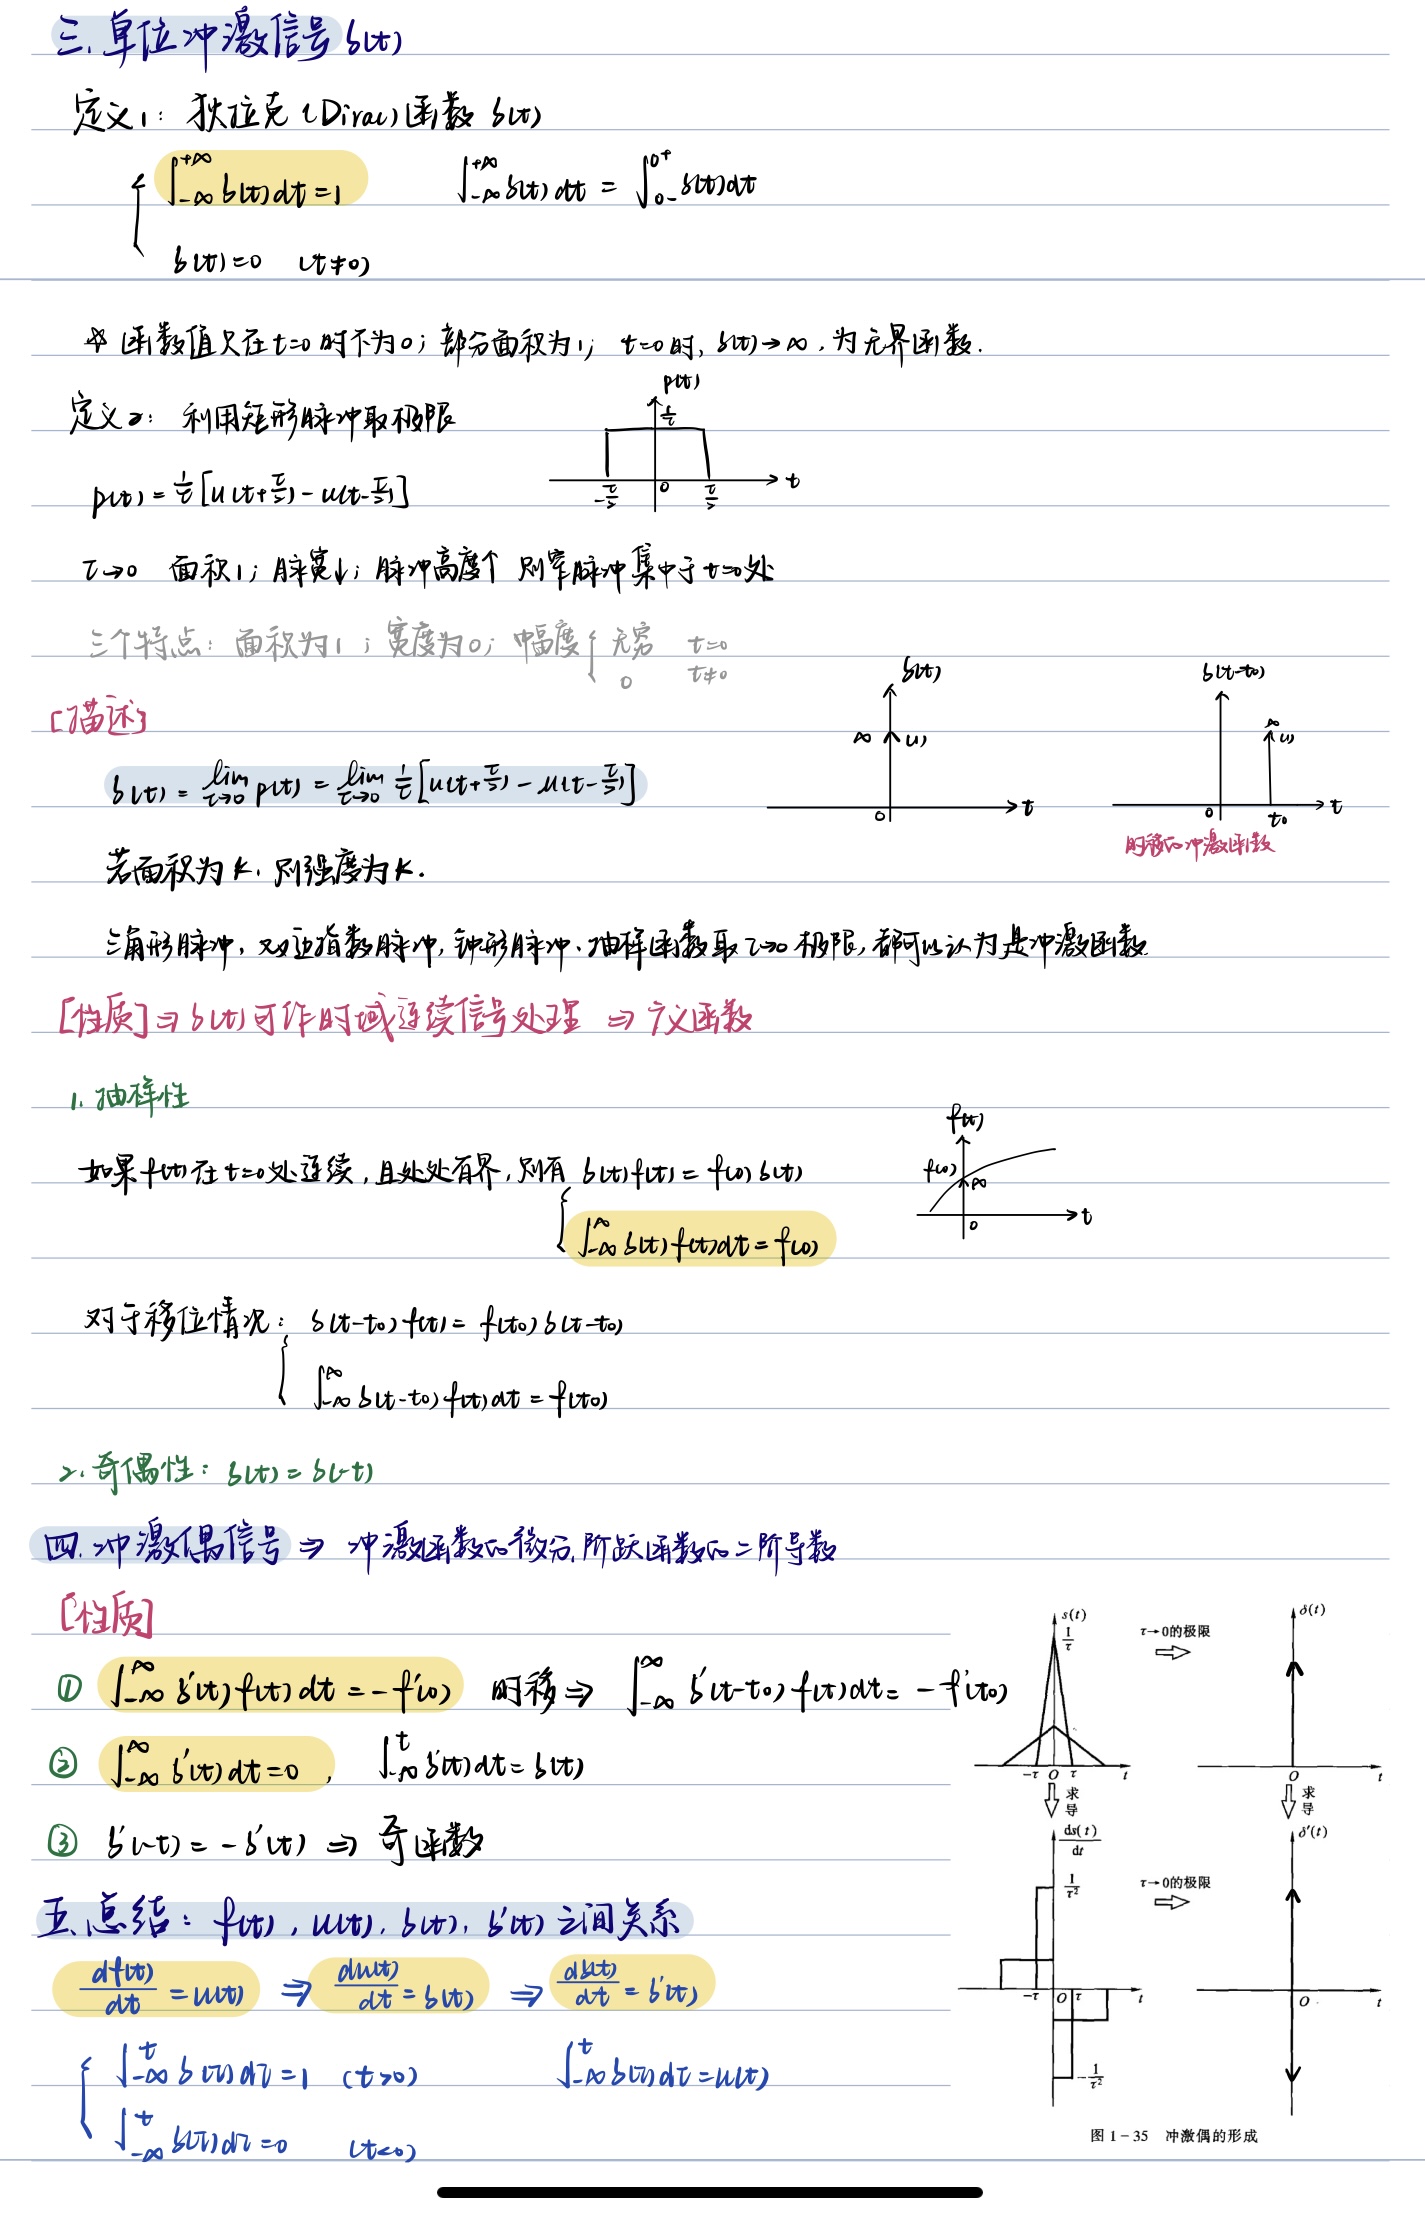 三.单位冲激信号 δ(t)
定义1: 狄拉克 (Dirac) 函数 δ(t)
{ ∫_{-∞}^{+∞} δ(t)dt=1    ∫_{-∞}^{+∞} δ(t)dt = ∫_{0-}^{0+} δ(t)dt
δ(t)=0 (t≠0)
* 函数值只在t=0时不为0; 部分面积为1; t=0时, δ(t)→∞, 为无界函数.
定义2: 利用矩形脉冲取极限
p(t)
1/τ
p(t) = 1/τ [u(t+τ/2) - u(t-τ/2)]
-τ/2 0 τ/2 t
τ→0 面积1; 脉宽↓; 脉冲高度↑ 则窄脉冲集中于t=0处
三个特点: 面积为1; 宽度为0; 幅度 { 无穷 t=0
0 t≠0
[描述]
δ(t) = lim_{τ→0} p(t) = lim_{τ→0} 1/τ [u(t+τ/2) - u(t-τ/2)]
δ(t)
∞ (1)
0 t
δ(t-t0)
∞ (1)
0 t0 t
时移的冲激函数
若面积为k, 则强度为k.
三角形脉冲, 双边指数脉冲, 钟形脉冲、抽样函数取τ→0极限, 都可以认为是冲激函数
[性质] ⇒ δ(t)可作时域连续信号处理 ⇒ 广义函数
1. 抽样性
如果f(t)在t=0处连续, 且处处有界, 则有 δ(t)f(t) = f(0)δ(t)
{ ∫_{-∞}^{∞} δ(t)f(t)dt = f(0)
f(t)
f(0) ∞
0 t
对于移位情况: δ(t-t0)f(t) = f(t0)δ(t-t0)
{ ∫_{-∞}^{∞} δ(t-t0)f(t)dt = f(t0)
2. 奇偶性: δ(t) = δ(-t)
四.冲激偶信号 ⇒ 冲激函数的微分, 阶跃函数的二阶导数
[性质]
① ∫_{-∞}^{∞} δ'(t)f(t)dt = -f'(0) 时移 ⇒ ∫_{-∞}^{∞} δ'(t-t0)f(t)dt = -f'(t0)
② ∫_{-∞}^{∞} δ'(t)dt=0, ∫_{-∞}^{t} δ'(t)dt = δ(t)
③ δ'(-t) = -δ'(t) ⇒ 奇函数
s(t)
1/τ
τ→0的极限
δ(t)
-τ O τ t
O t
求导
求导
ds(t)/dt
δ'(t)
1/τ²
τ→0的极限
-τ O τ t
O t
-1/τ²
图 1-35 冲激偶的形成
五.总结: f(t), u(t), δ(t), δ'(t) 之间关系
df(t)/dt = u(t) ⇒ du(t)/dt = δ(t) ⇒ dδ(t)/dt = δ'(t)
{ ∫_{-∞}^{t} δ(τ)dτ = 1 (t>0)    ∫_{-∞}^{t} δ(τ)dτ = u(t)
∫_{-∞}^{t} δ(τ)dτ = 0 (t<0)